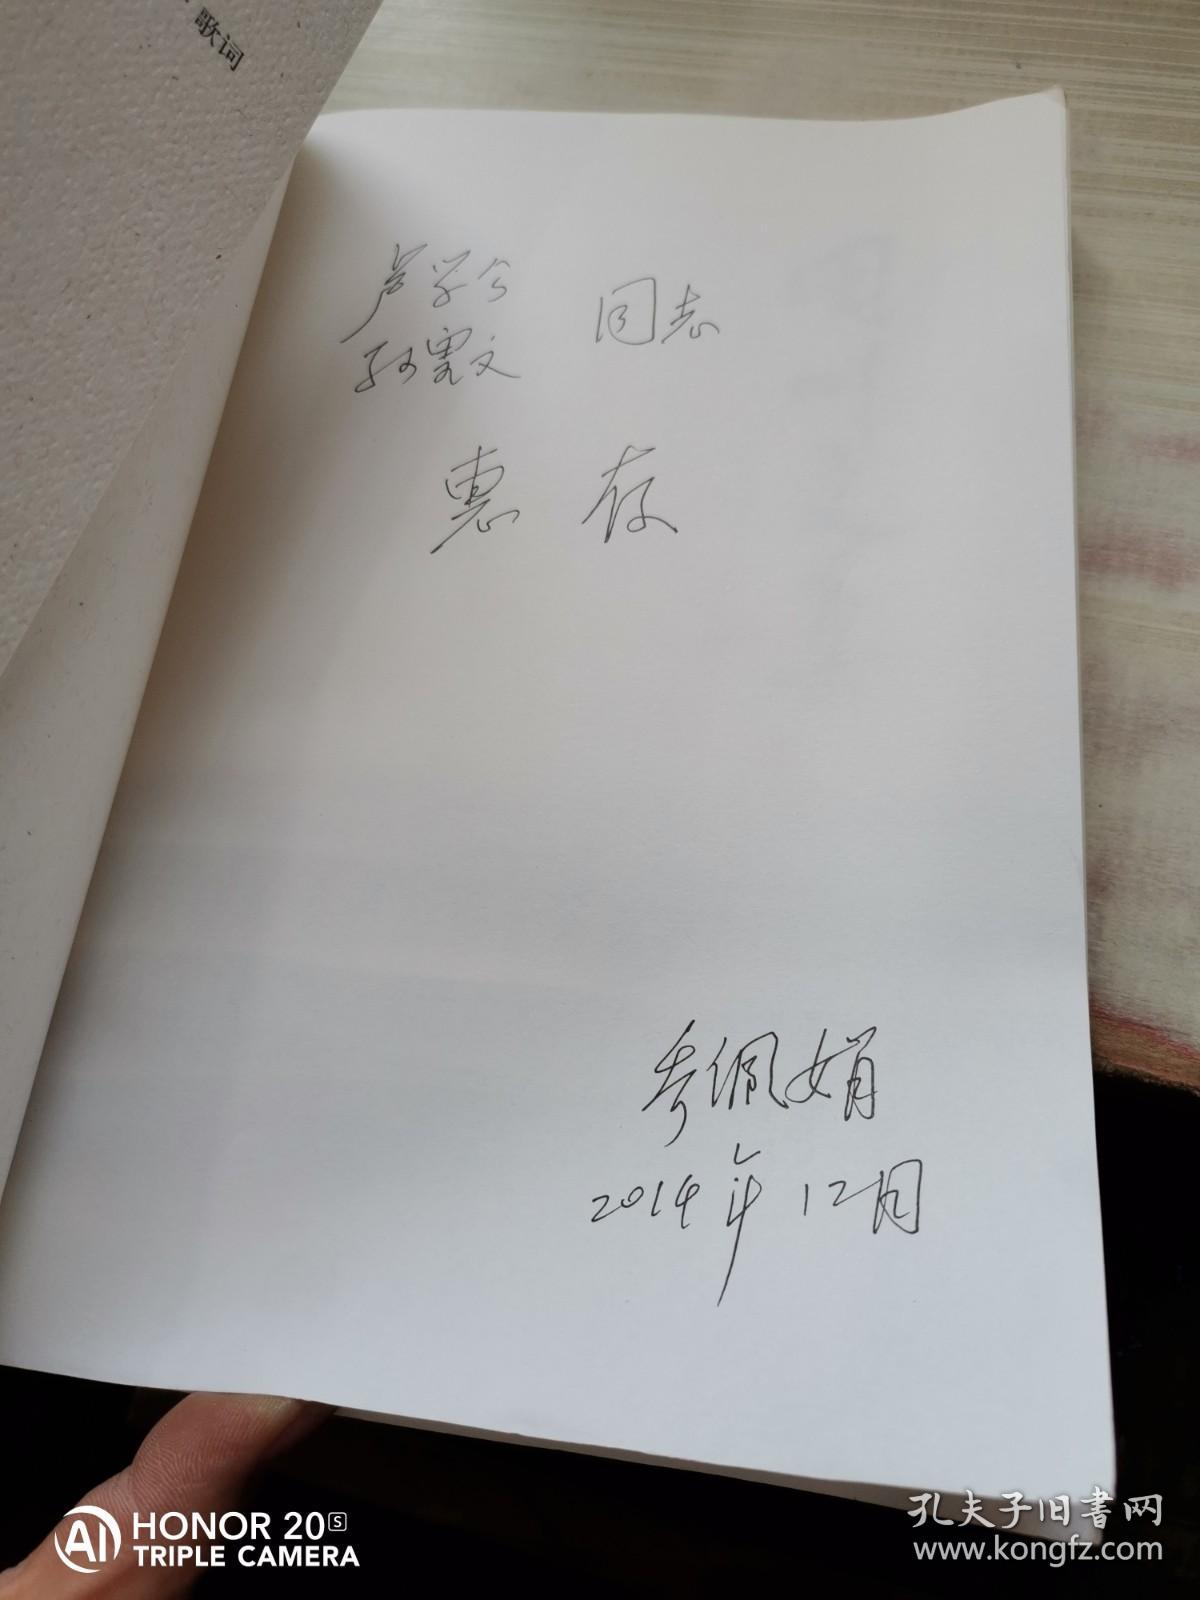 歌词
芦学令
孙霭文 同志
惠存
季佩娟
2014年12月
HONOR 20S
TRIPLE CAMERA
孔夫子旧書网
www.kongfz.com